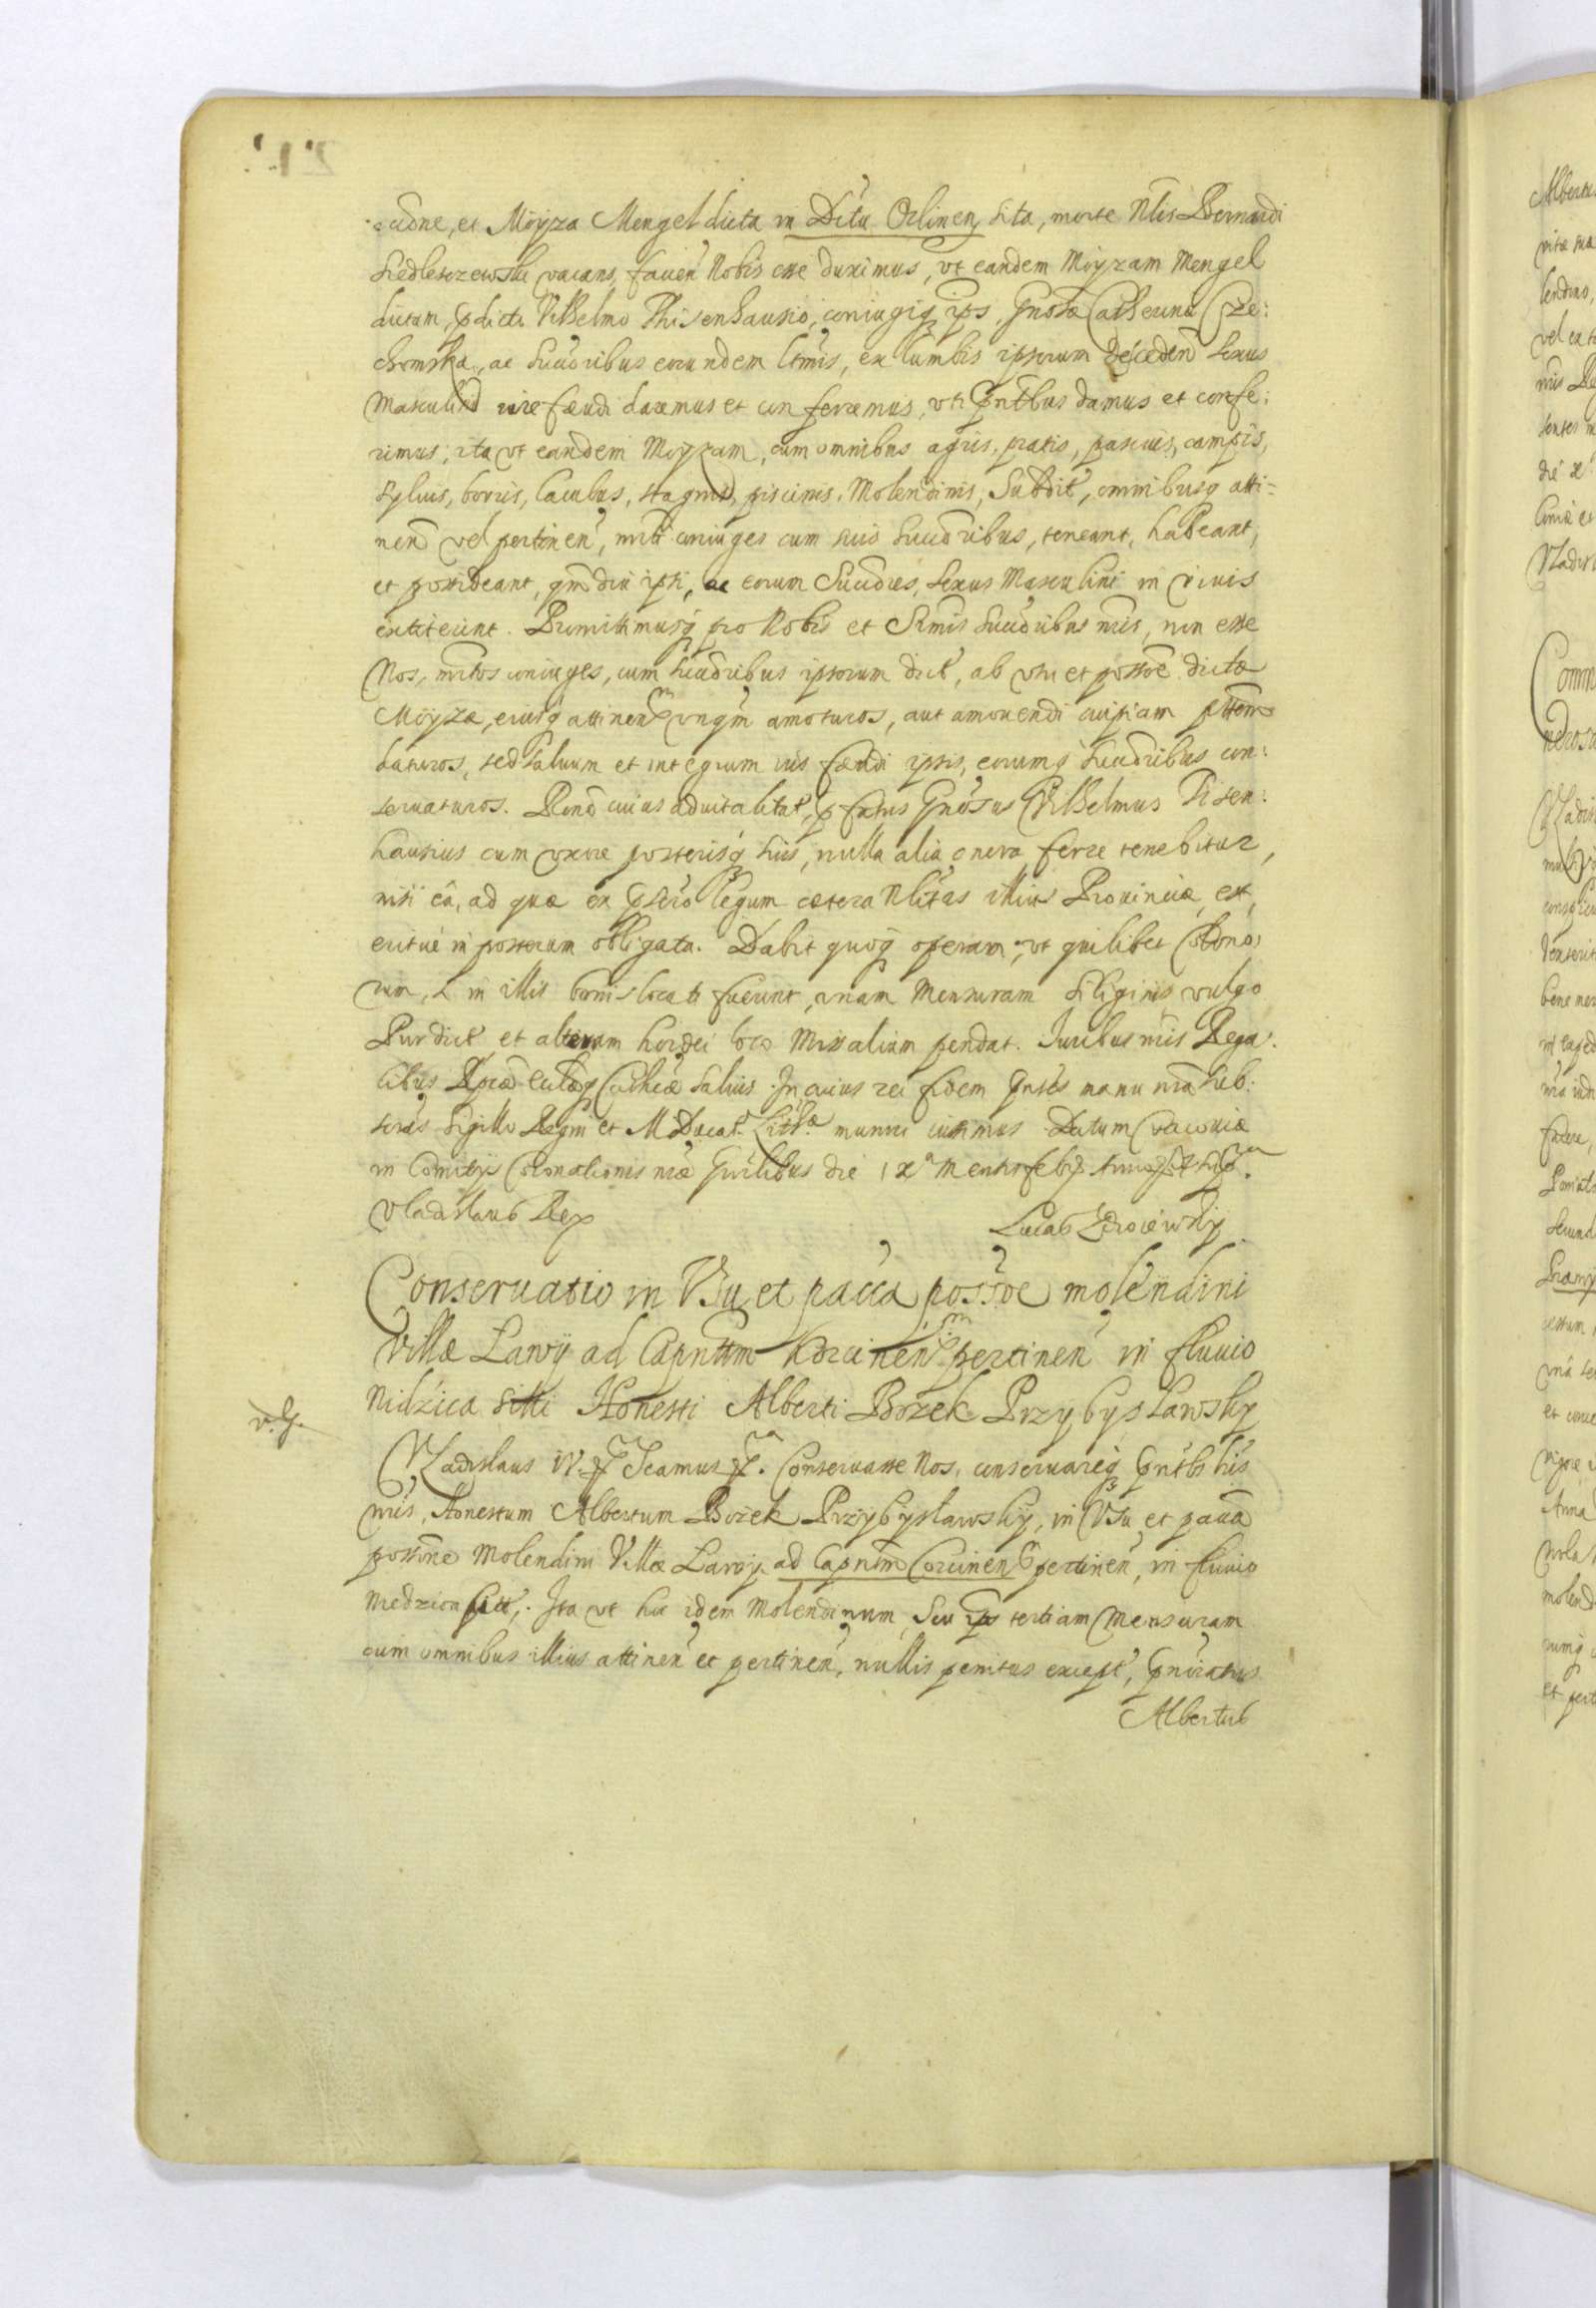 et Moyza Mengel dicta in Dẽtu Orlinen, sita, morte Nlis Bernardi
Siedleszczewski vacans, faven Nobis esse duximus, vt eandem Moyzam Mengel
dictam, pdicto Vilhelmo Thisenhausio, coniugiq ips, Gnosæ Catherinæ Cze:
chomska, ac Succoribus eorundem ltmis, ex lumbis ipsorum deceden sexus
Masculini iure fæudi daremus et conferremus, vti pntbus damus et confe:
rimus; ita vt eandem Moyzam, cum omnibus agris, pratis, pascuis, campis,
sylvis, boris, lacubus, stagnis, piscinis, Molendinis, Subdit, omnibusq atti=
nen vel pertinen, mti coniuges cum suis Succoribus, teneant, habeant,
et possideant, qmdiu ipsi, ac eorum Succores, sexus Masculini in vivis
extiterint. Promittimusq pro Nobis et Srmis Succoribus nris, non esse
Nos, mtos coniuges, cum succoribus ipsorum dict, ab vsu et possoe dictæ
Moyzæ, eiusq attinen vnqm amoturos, aut amovendi cuipiam ptem
daturos, sed salvum et integrum ius fæudi ipsis, eorumq succoribus con:
servaturos. Rone cuius advitalitat, pfatus Gnosus Vilhelmus Tisen:
hausius cum vxore posterisq suis, nulla alia onera ferre tenebitur,
nisi ea, ad quæ ex pscro legum cætera Nlitas illius Provinciæ est,
eritue in posterum obligata. Dabit quoq operam, vt quilibet Colono
rum, in illis bonis locati fuerint, vnam Mensuram Siliginis vulgo
Pur dict et alteram hordei loco Missalium pendat. Iuribus nris Rega:
libus Reipcæ Eccliæq Catholicæ salvis. In cuius rei fidem pntes manu nra sub:
scras Sigillo Regni et M Ducat. Lithæ muniri iussimus. Datum Cracoviæ
in Comitijs Coronationis nræ Gnralibus die IX Mensis Febr. Anno
Vladislaus Rex Lucas Zdroiewsky
Conservatio in Vsu et pacca possoe molendini
Villæ Lawy ad Capntum Korcinen pertinen in fluvio
Nidzica Siti Honesti Alberti Bozek Przybyslawsky
v. g.
Vladislaus IV. Scamus. Conservasse Nos, conservareq pntbs lris
nris, Honestum Albertum Bozek Przybyslawsky, in Vsu et pacca
possne Molendini Villæ Lawy ad Capntm Corcinen pertinen, in fluvio
Niedzica Siti. Ita vt hic idem Molendinum, Seu ips tertiam Mensuram
cum omnibus illius attinen et pertinen, nullis penitus except, pnoiatus
Albertus